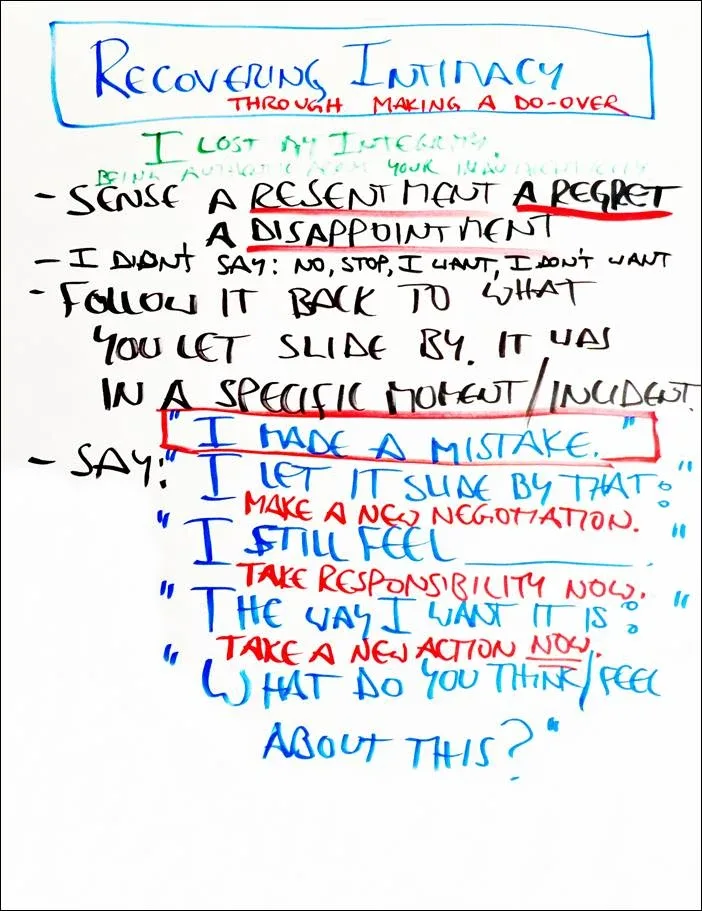 RECOVERING INTIMACY
THROUGH MAKING A DO-OVER
I LOST MY INTEGRITY.
BEING AUTHENTIC ABOUT YOUR INAUTHENTICITY
- SENSE A RESENTMENT A REGRET
A DISAPPOINTMENT
- I DIDN'T SAY: NO, STOP, I WANT, I DON'T WANT
- FOLLOW IT BACK TO WHAT
YOU LET SLIDE BY. IT WAS
IN A SPECIFIC MOMENT/INCIDENT.
"I MADE A MISTAKE."
- SAY: "I LET IT SLIDE BY THAT: "
MAKE A NEW NEGOTIATION.
"I STILL FEEL ________. "
TAKE RESPONSIBILITY NOW.
"THE WAY I WANT IT IS: "
TAKE A NEW ACTION NOW.
"WHAT DO YOU THINK/FEEL
ABOUT THIS?"